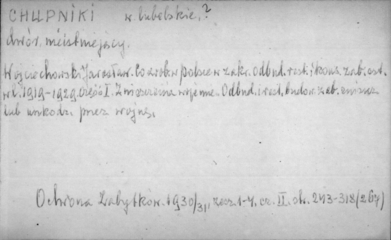 CHUPNIKI w. lubelskie,?
dwór. nieistniejący.
Wojciechowski Jarosław. Co zrobił w Polsce w zakr. odbud. rest. i kons. zab. ...
w l. 1919-1929. Część I. Zniszczenia wojenne. Odbud. i rest. budow. zab. znisz.
lub uszkodz. przez wojnę.
Ochrona Zabytków. 1930/31, zesz. 1-4, cz. II. str. 243-318 (267)